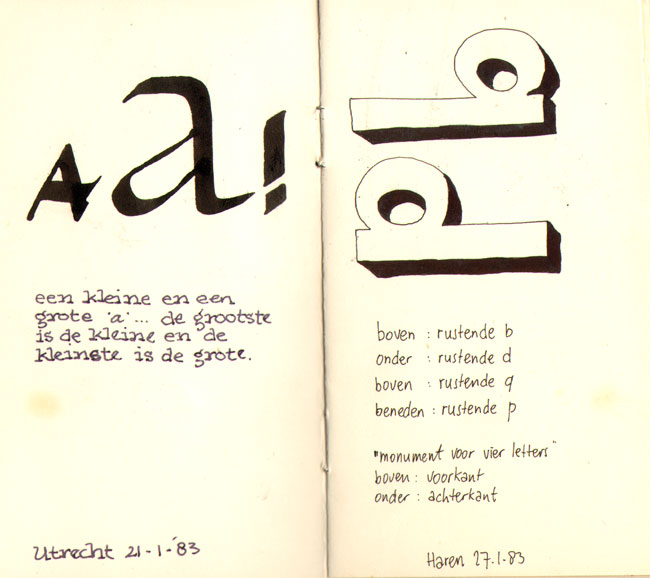 A a!
een kleine en een
grote 'a'... de grootste
is de kleine en de
kleinste is de grote.
Utrecht 21-1-'83
boven : rustende b
onder : rustende d
boven : rustende q
beneden : rustende p
"monument voor vier letters"
boven : voorkant
onder : achterkant
Haren 27.1.83